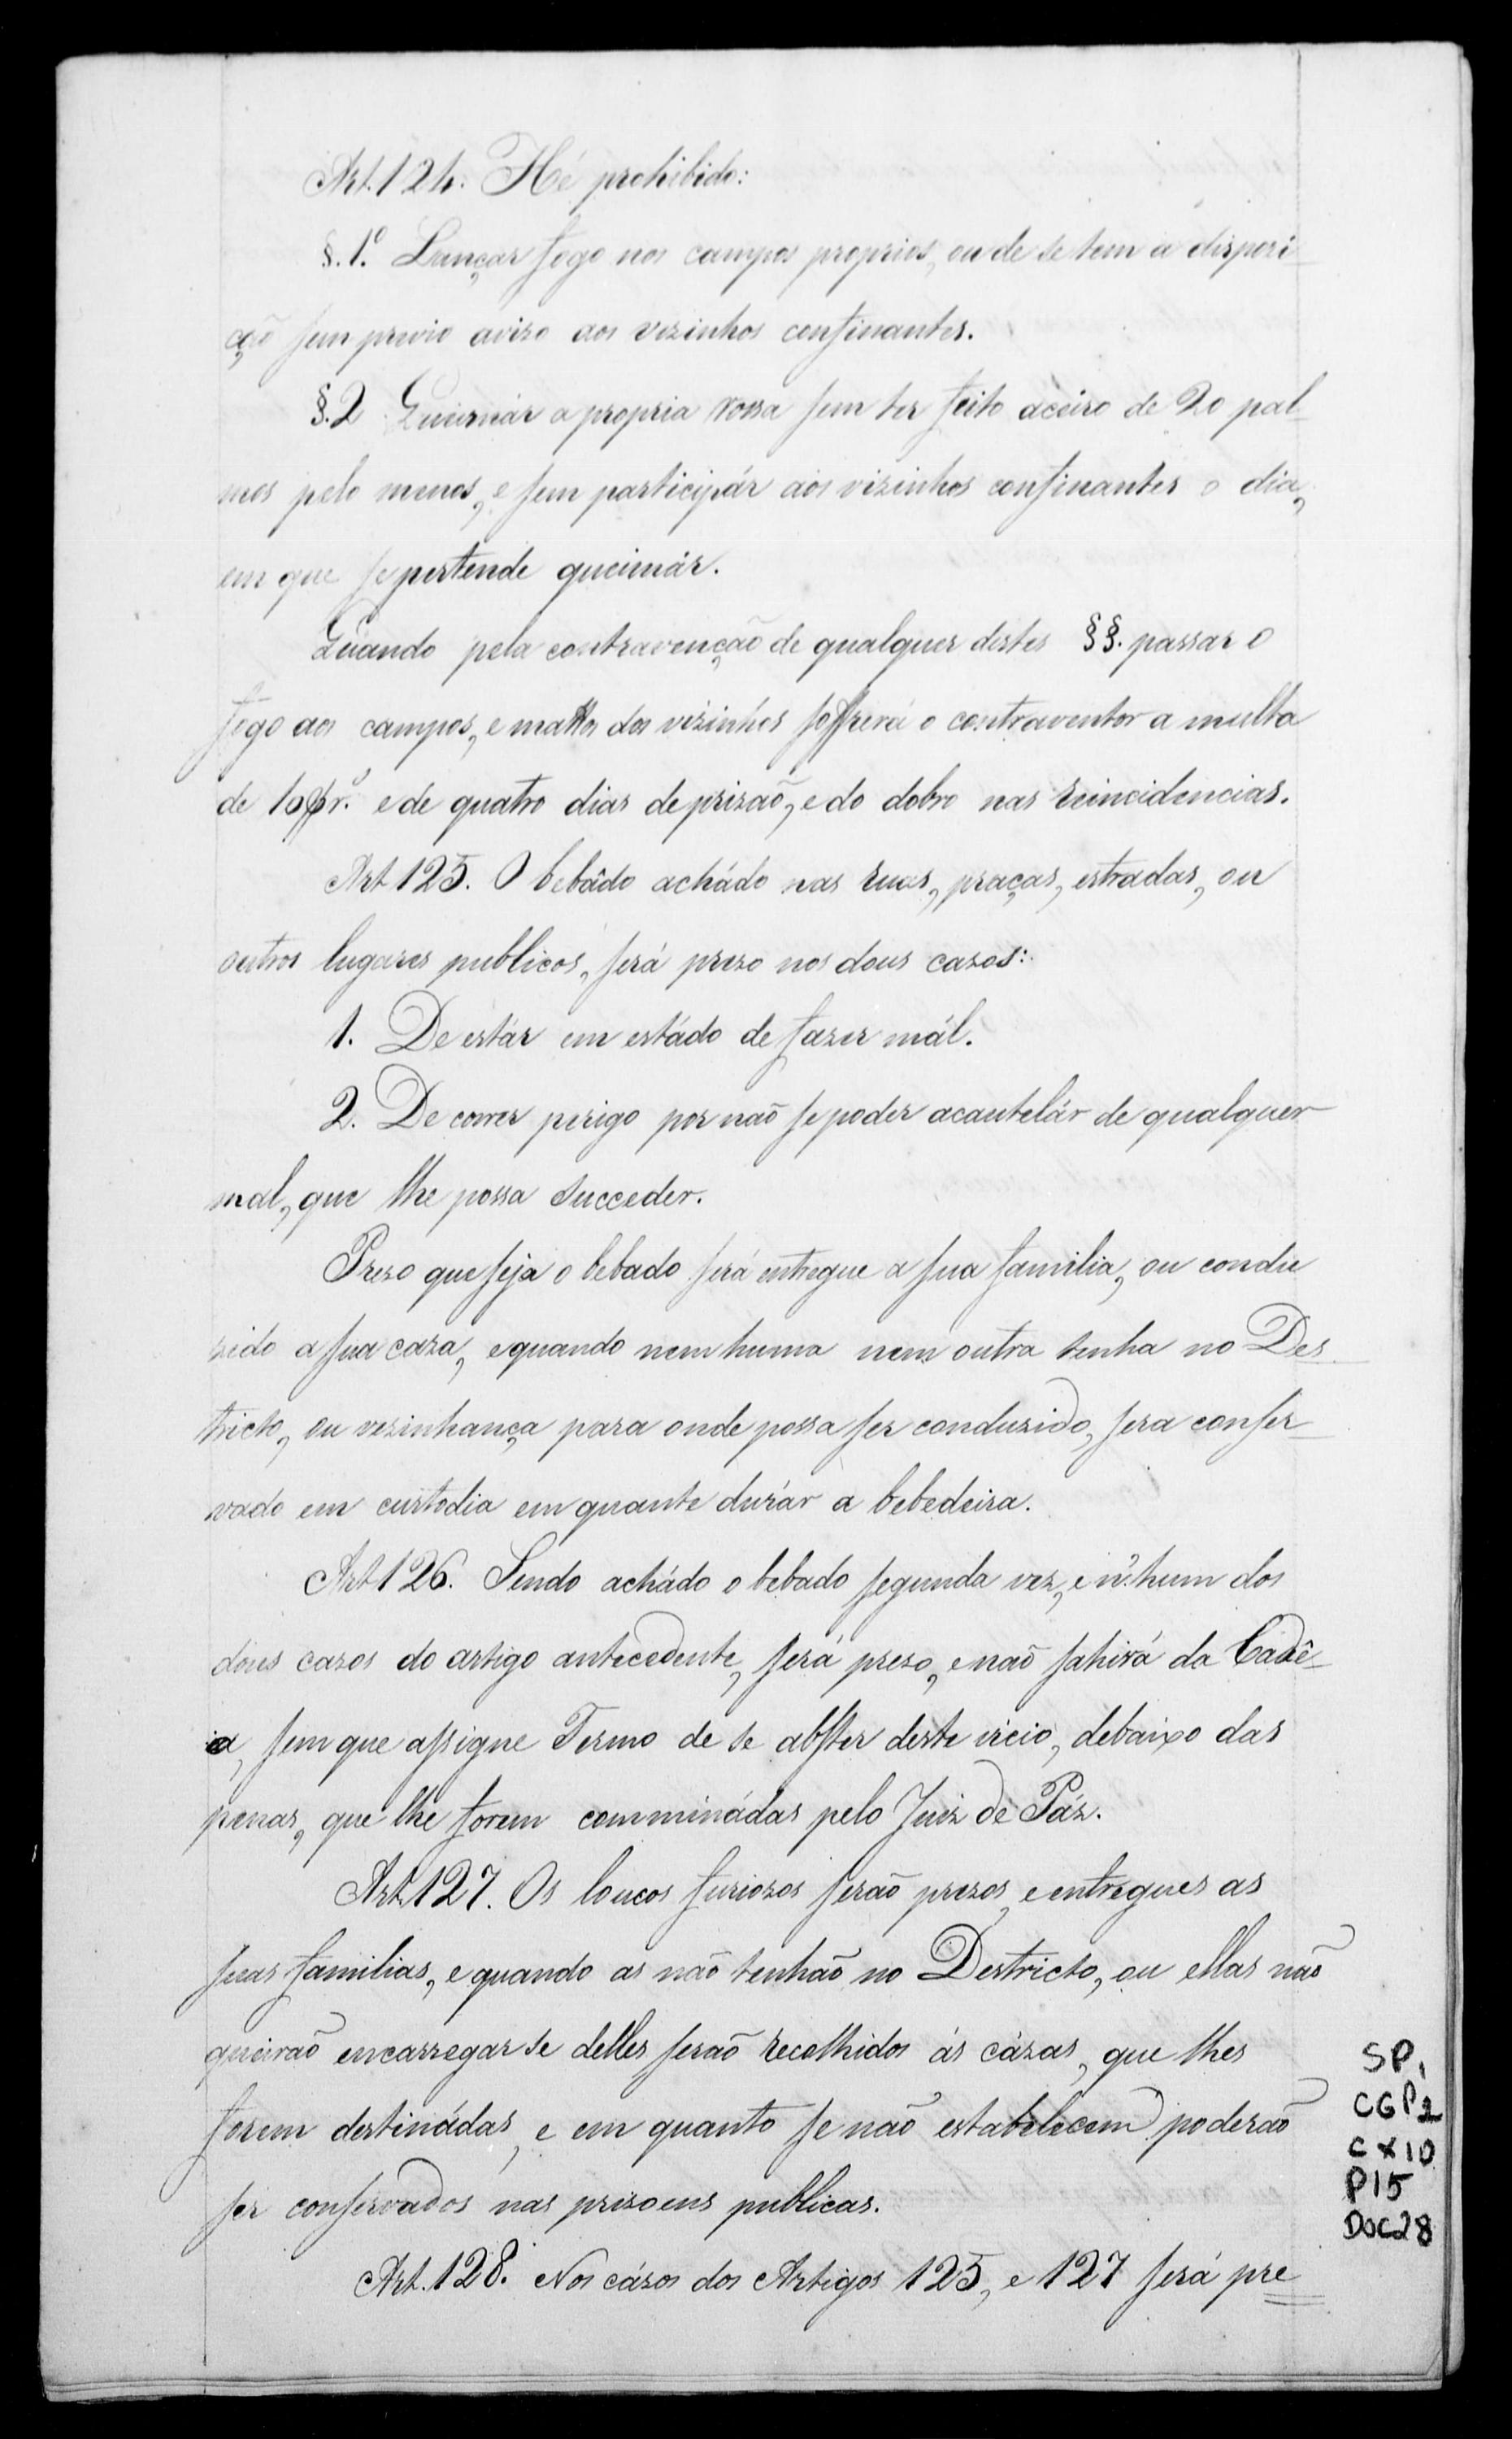 Art. 124. Hé prohibido:
§. 1º Lançar fogo nos campos proprios, ou de se tem a disposi-
ção sem previo aviso aos vezinhos confinantes.
§. 2 Queimár a propria rossa sem ter feito aceiro de 20 pal-
mos pelo menos, e sem participár aos vizinhos confinantes o dia,
em que se pertende queimár.
Quando pela contravenção de qualquer destes §§. passar o
fogo aos campos, e mattos dos vizinhos soffrerá o contraventor a multa
de 10$rº. e de quatro dias de prizaõ, e do dobro nas reincidencias.
Art 125. O bebâdo achádo nas ruas, praças, estradas, ou
outros lugares publicos, será prezo nos dous cazos:
1. De estár em estádo de fazer mál.
2. De correr perigo por naõ se poder acautelár de qualquer
mal, que lhe possa succeder.
Prezo que seja o bebado será entregue a sua familia, ou condu
zido a sua caza, e quando nem huma nem outra tenha no Des-
tricto, ou vezinhança para onde possa ser conduzido, sera conser-
vado em custodia em quante durár a bebedeira.
Art 126. Sendo achádo o bebado segunda vez, e n'hum dos
dous cazos do artigo antecedente, será prezo, e naõ sahirá da Cadê-
a, sem que assigne Termo de se abster deste vicio, debaixo das
penas, que lhe forem comminádas pelo Juiz de Páz.
Art. 127. Os loucos furiozos seraõ prezos, e entregues as
suas familias, e quando as naõ tenhaõ no Destricto, ou ellas naõ
queiraõ encarregar se delles seraõ recolhidos ás cázas, que lhes
forem destinádas, e em quanto se naõ estabelecem poderaõ
ser conservados nas prizoens publicas.
Art. 128. Nos cázos dos Artigos 125, e 127 será pre
SP,
CGP2
CX10
P15
DOC28